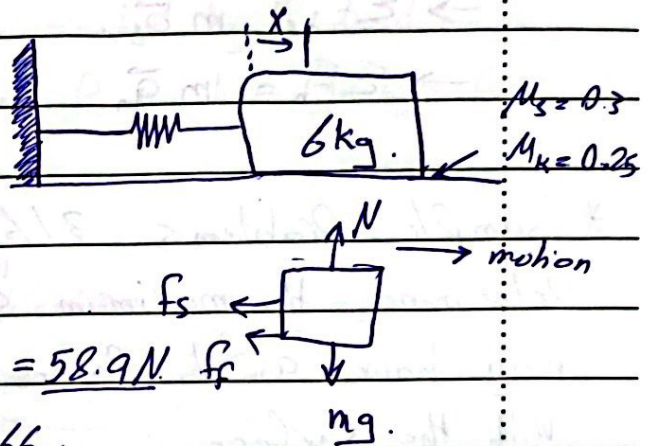 x
μs = 0.3
6kg.
μk = 0.25
N
motion
fs
= 58.9N. ff
mg.